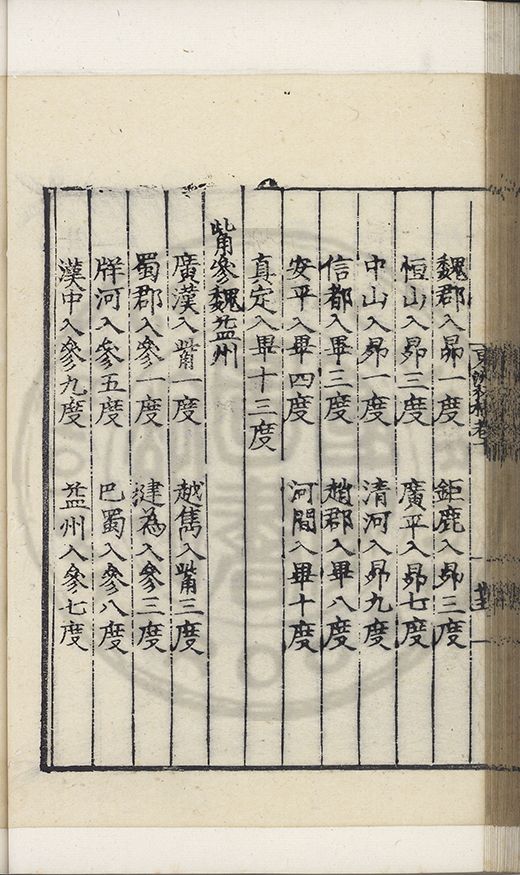 魏郡入昴一度　鉅鹿入昴三度
恒山入昴三度　廣平入昴七度
中山入昴一度　清河入昴九度
信都入畢三度　趙郡入畢八度
安平入畢四度　河間入畢十度
真定入畢十三度
觜參魏益州
廣漢入觜一度　越雋入觜三度
蜀郡入參一度　犍為入參三度
牂河入參五度　巴蜀入參八度
漢中入參九度　益州入參七度